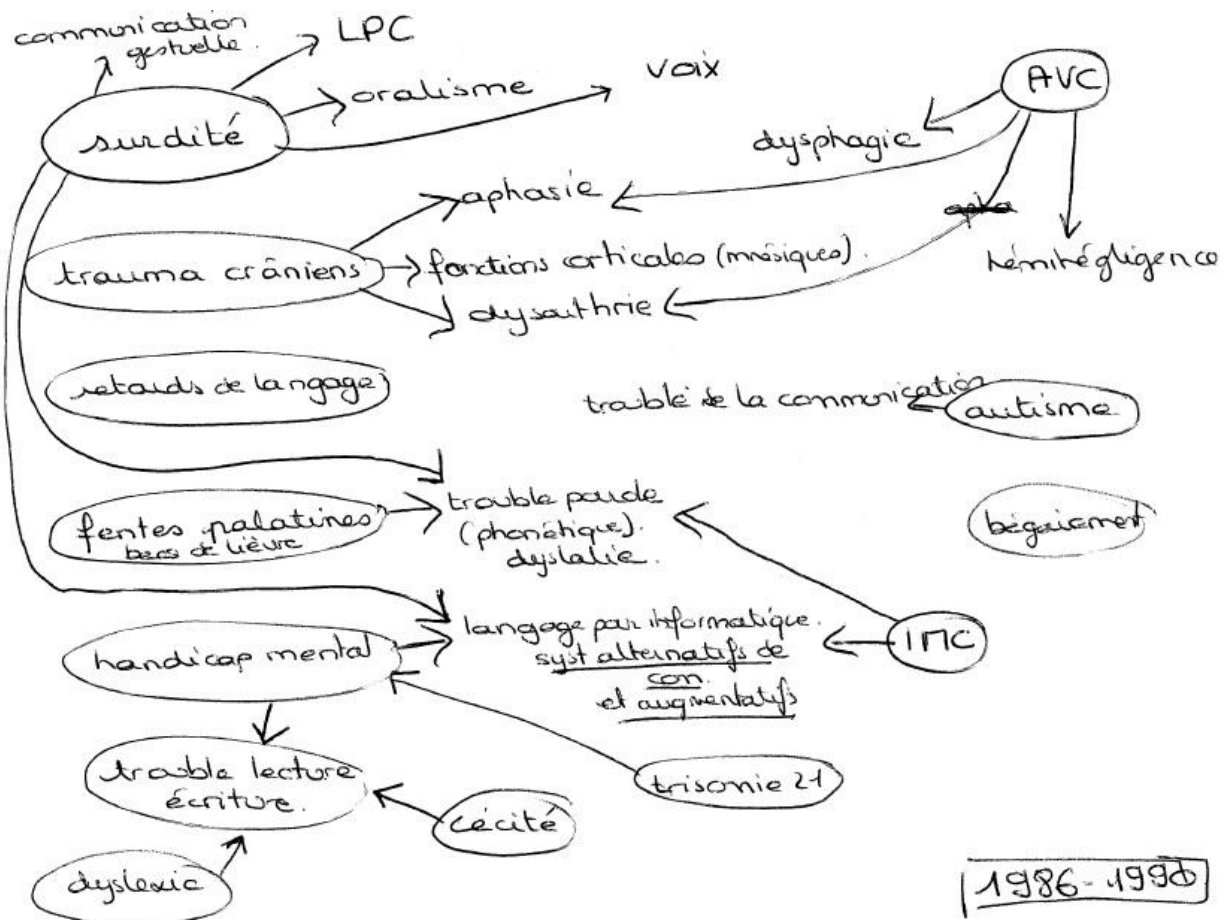 communication
gestuelle.
LPC
oralisme
voix
AVC
surdité
dysphagie
aphasie
trauma crâniens
fonctions corticales (mnésiques).
héminégligence
dysarthrie
retards de langage
trouble de la communication
autisme
fentes palatines
becs de lièvre
trouble parole
(phonétique).
dyslalie.
bégaiement
handicap mental
langage par informatique.
syst alternatifs de
com.
et augmentatifs
IMC
trouble lecture
écriture.
trisomie 21
cécité
dyslexie
1986-1990